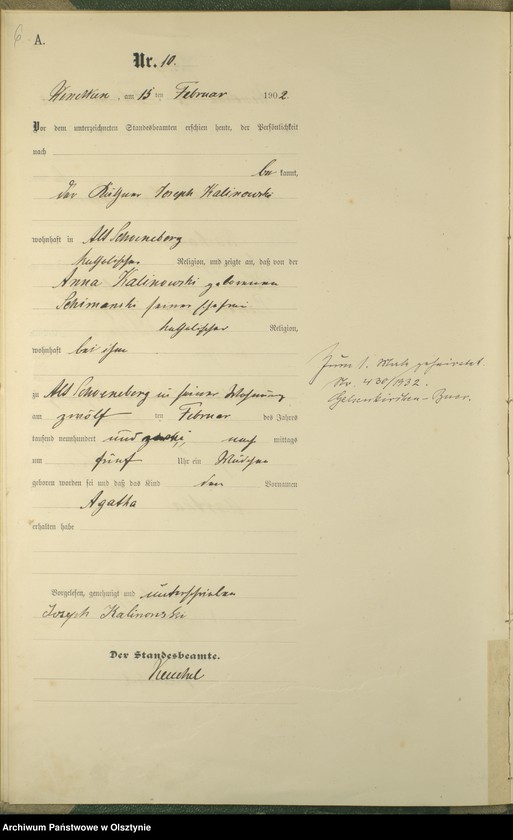 6
A.
Nr. 10.
am 15 ten Februar 1902
Vor dem unterzeichneten Standesbeamten erschien heute, der Persönlichkeit
nach
be kannt,
der Käthner Joseph Kalinowski
wohnhaft in Alt Schoeneberg
katholischer Religion, und zeigte an, daß von der
Anna Kalinowski geborenen
Schimanski seiner Ehefrau
katholischer Religion,
wohnhaft bei ihm
zu Alt Schoeneberg in seiner Wohnung
am zwölf ten Februar des Jahres
tausend neunhundert und zwei, nach mittags
um fünf Uhr ein Mädchen
geboren worden sei und daß das Kind den Vornamen
Agatha
erhalten habe
Vorgelesen, genehmigt und unterschrieben
Joseph Kalinowski
Der Standesbeamte.
Zum 1. Mal geheiratet
Nr. 430/1932.
Gelsenkirchen-Buer.
Archiwum Państwowe w Olsztynie